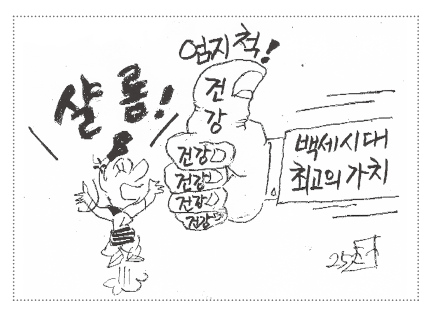 엄지척!
샬롬!
건
강
건강
건강
건강
건강
백세시대
최고의 가치